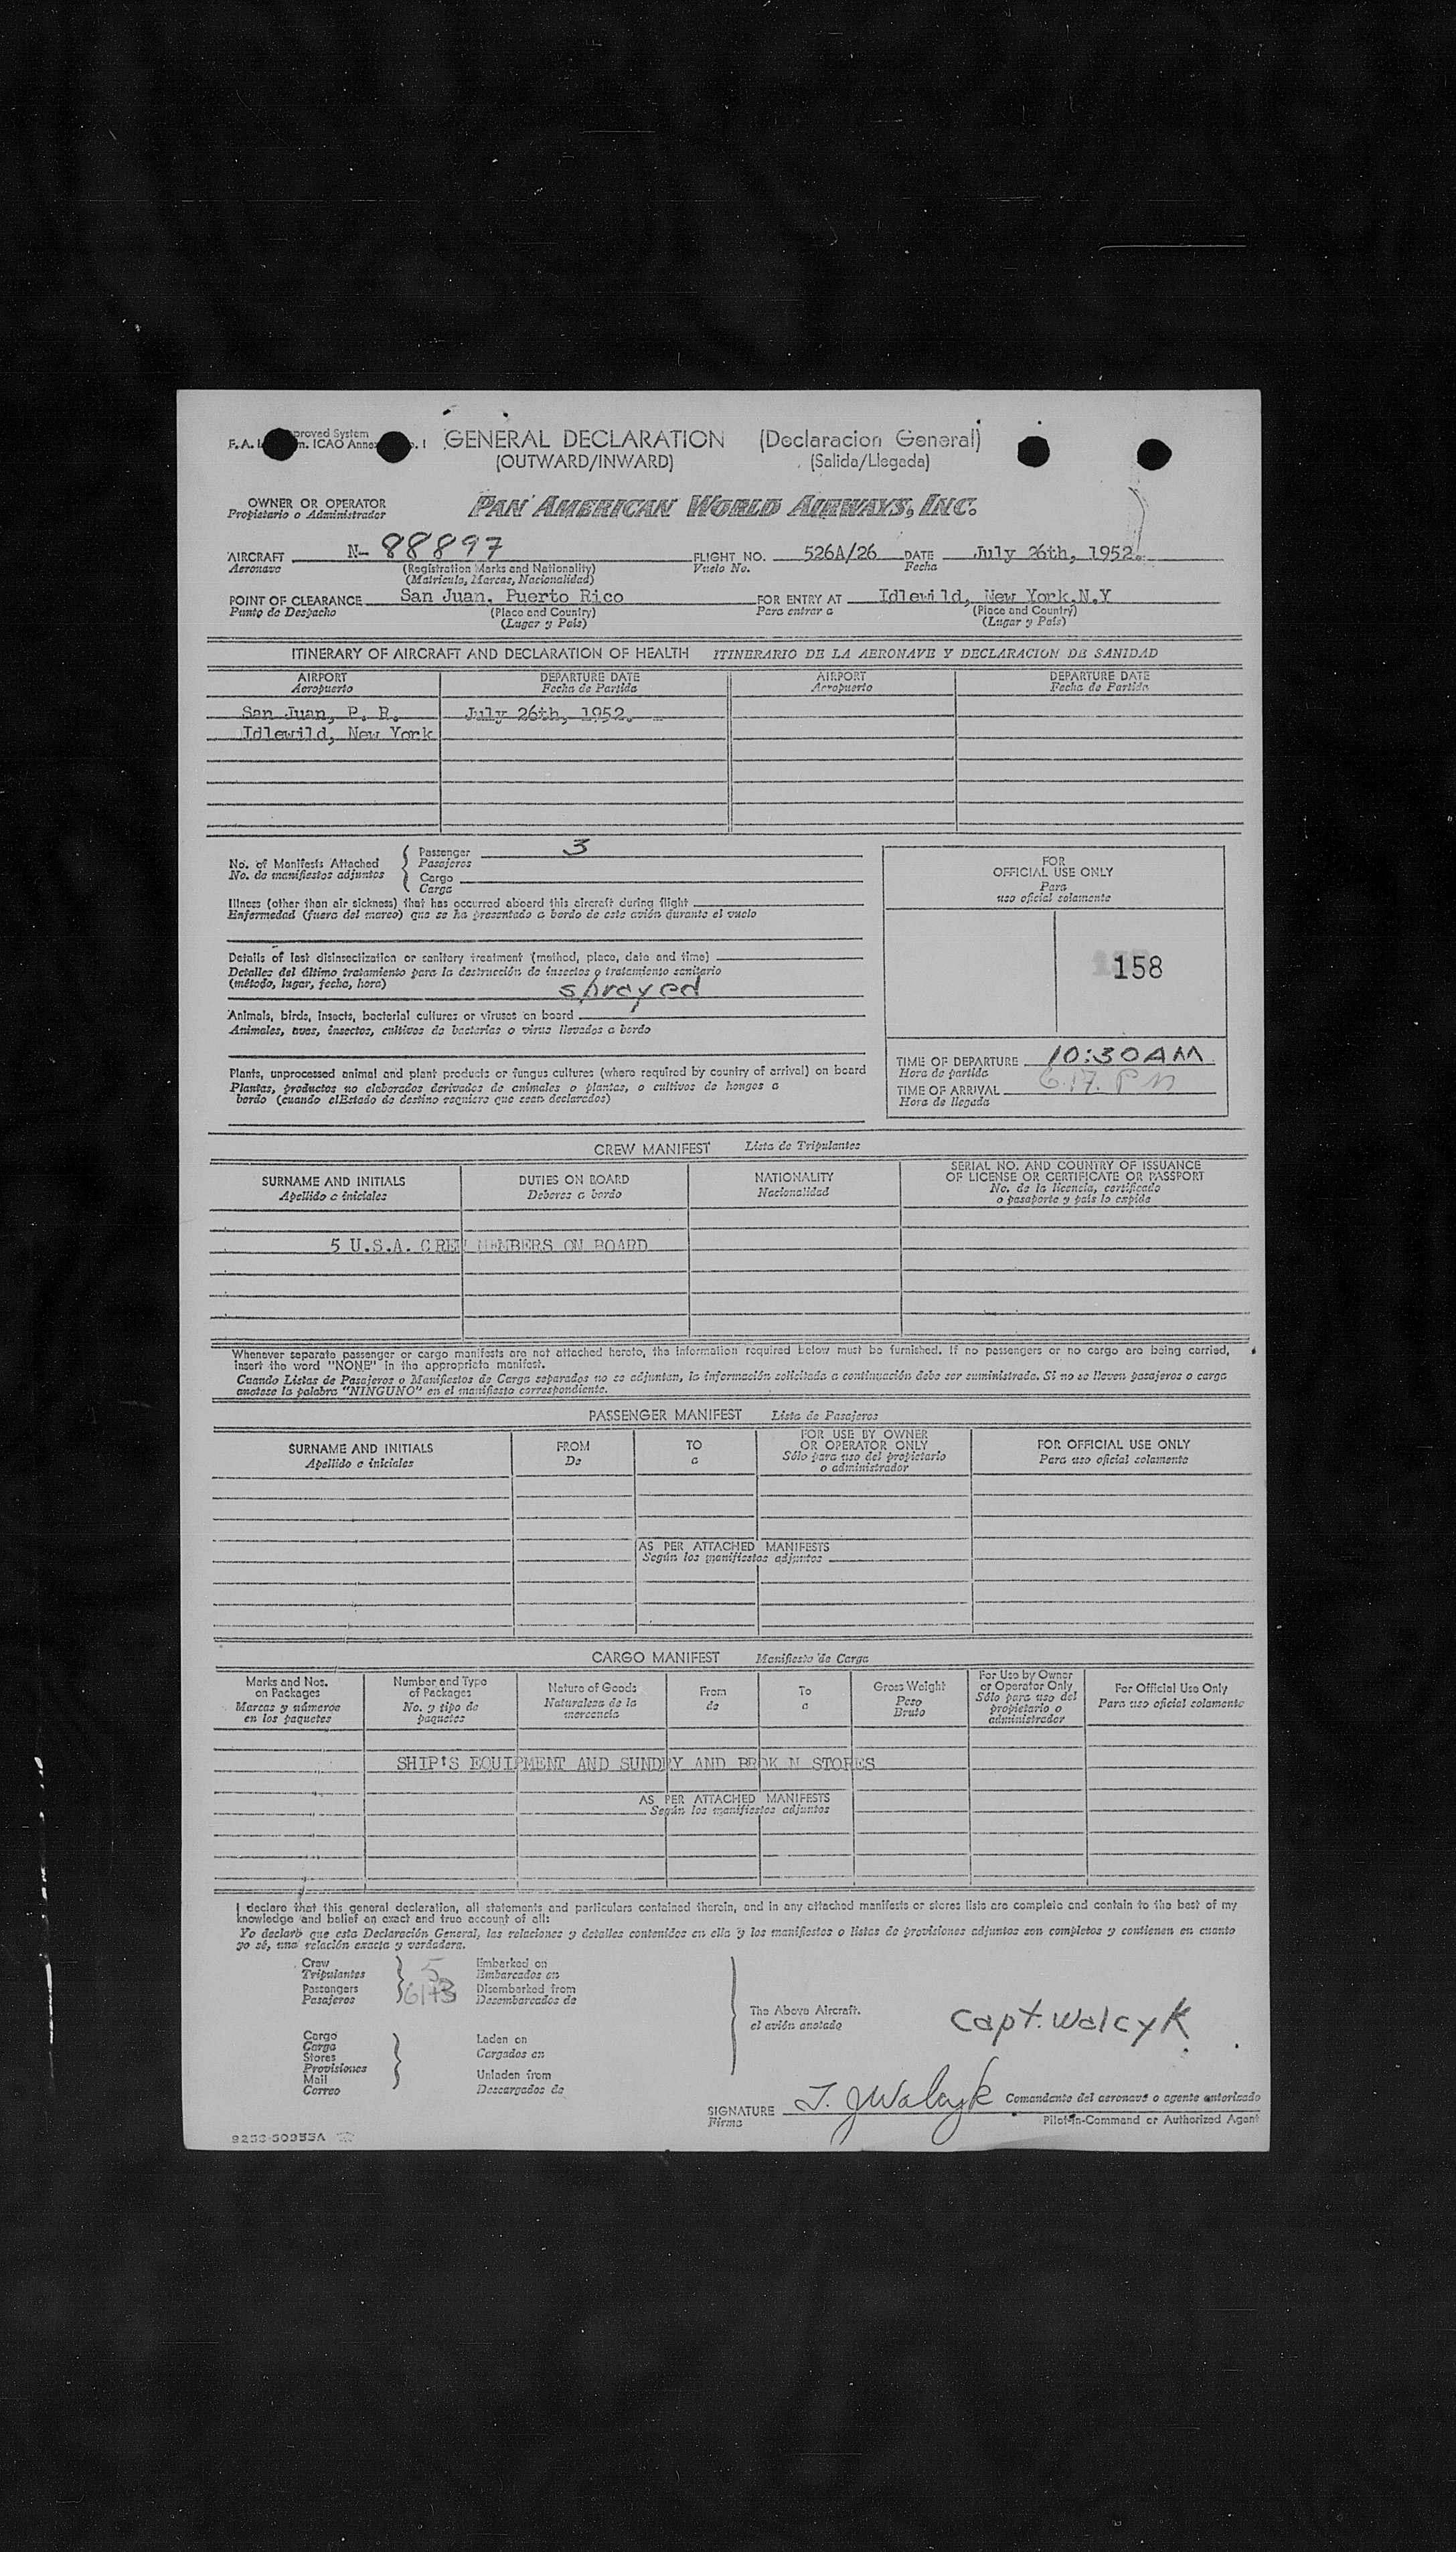 GENERAL DECLARATION (Declaracion General)
(OUTWARD/INWARD) (Salida/Llegada)
OWNER OR OPERATOR
Propietario o Administrador
PAN AMERICAN WORLD AIRWAYS, INC.
AIRCRAFT N- 88897 FLIGHT NO. 526A/26 DATE July 26th, 1952.
Aeronave (Registration Marks and Nationality) Vuelo No. Fecha
(Matricula, Marcas, Nacionalidad)
POINT OF CLEARANCE San Juan, Puerto Rico FOR ENTRY AT Idlewild, New York,N.Y
Punto de Despacho (Place and Country) Para entrar a (Place and Country)
(Lugar y País) (Lugar y País)
ITINERARY OF AIRCRAFT AND DECLARATION OF HEALTH ITINERARIO DE LA AERONAVE Y DECLARACION DE SANIDAD
AIRPORT DEPARTURE DATE AIRPORT DEPARTURE DATE
Aeropuerto Fecha de Partida Aeropuerto Fecha de Partida
San Juan, P. R. July 26th, 1952.
Idlewild, New York
No. of Manifests Attached
No. de manifiestos adjuntos
Passenger 3
Pasajeros
Cargo
Carga
Illness (other than air sickness) that has occurred aboard this aircraft during flight
Enfermedad (fuera del mareo) que se ha presentado a bordo de este avión durante el vuelo
Details of last disinsectization or sanitary treatment (method, place, date and time)
Detalles del último tratamiento para la destrucción de insectos o tratamiento sanitario
(método, lugar, fecha, hora) sprayed
Animals, birds, insects, bacterial cultures or viruses on board
Animales, aves, insectos, cultivos de bacterias o virus llevados a bordo
Plants, unprocessed animal and plant products or fungus cultures (where required by country of arrival) on board
Plantas, productos no elaborados derivados de animales o plantas, o cultivos de hongos a
bordo (cuando elEstado de destino requiere que sean declarados)
FOR
OFFICIAL USE ONLY
Para
uso oficial solamente
158
TIME OF DEPARTURE 10:30AM
Hora de partida
TIME OF ARRIVAL 6:17 PM
Hora de llegada
CREW MANIFEST Lista de Tripulantes
SURNAME AND INITIALS DUTIES ON BOARD NATIONALITY SERIAL NO. AND COUNTRY OF ISSUANCE
OF LICENSE OR CERTIFICATE OR PASSPORT
Apellido e iniciales Deberes a bordo Nacionalidad No. de la licencia, certificado
o pasaporte y país lo expide
5 U.S.A. CREW MEMBERS ON BOARD
Whenever separate passenger or cargo manifests are not attached hereto, the information required below must be furnished. If no passengers or no cargo are being carried,
insert the word "NONE" in the appropriate manifest.
Cuando Listas de Pasajeros o Manifiestos de Carga separados no se adjuntan, la información solicitada a continuación debe ser suministrada. Si no se lleven pasajeros o carga
anotese la palabra "NINGUNO" en el manifiesto correspondiente.
PASSENGER MANIFEST Lista de Pasajeros
SURNAME AND INITIALS FROM TO FOR USE BY OWNER
OR OPERATOR ONLY FOR OFFICIAL USE ONLY
Apellido e iniciales De a Sólo para uso del propietario
o administrador Para uso oficial solamente
AS PER ATTACHED MANIFESTS
Según los manifiestos adjuntos
CARGO MANIFEST Manifiesto de Carga
Marks and Nos.
on Packages
Marcas y números
en los paquetes
Number and Type
of Packages
No. y tipo de
paquetes
Nature of Goods
Naturaleza de la
mercancía
From
de
To
a
Gross Weight
Peso
Bruto
For Use by Owner
or Operator Only
Sólo para uso del
propietario o
administrador
For Official Use Only
Para uso oficial solamente
SHIP'S EQUIPMENT AND SUNDRY AND BROK N STORES
AS PER ATTACHED MANIFESTS
Según los manifiestos adjuntos
I declare that this general declaration, all statements and particulars contained therein, and in any attached manifests or stores lists are complete and contain to the best of my
knowledge and belief an exact and true account of all:
Yo declaro que esta Declaración General, las relaciones y detalles contenidos en ella y los manifiestos o listas de provisiones adjuntos son completos y contienen en cuanto
yo sé, una relación exacta y verdadera.
Crew 5 Embarked on
Tripulantes Embarcados en
Passengers Disembarked from
Pasajeros Desembarcados de
Cargo
Carga
Stores
Provisiones
Mail
Correo
Laden on
Cargados en
Unladen from
Descargados de
The Above Aircraft.
el avión anotado
Capt. Walcyk
SIGNATURE T. J Walcyk Comandante del aeronave o agente autorizado
Firma Pilot-in-Command or Authorized Agent